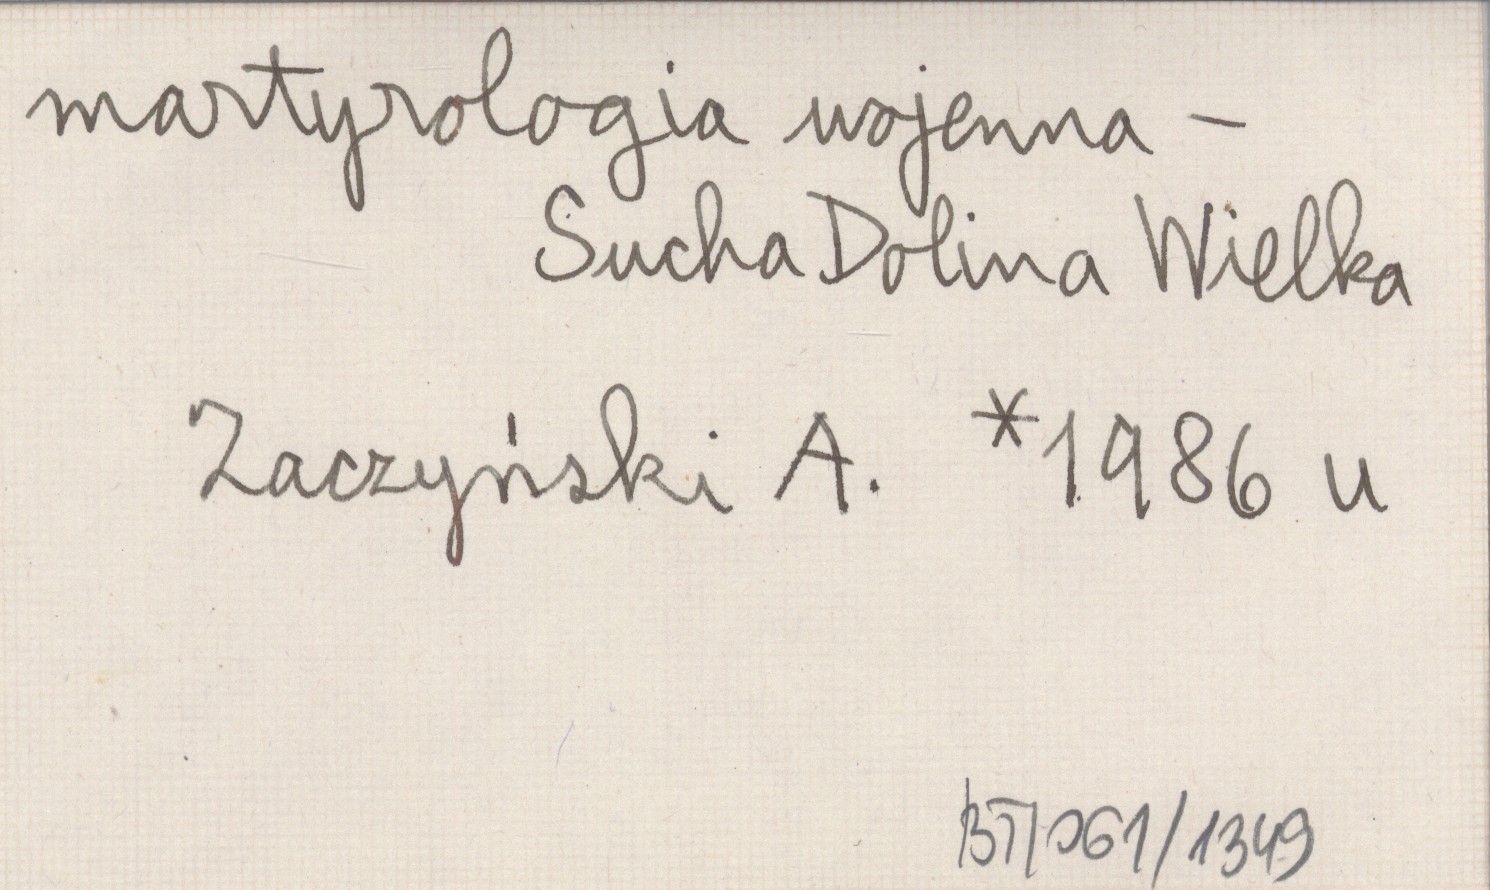 martyrologia wojenna –
Sucha Dolina Wielka
Zaczyński A. *1986 u
BT/061/1349